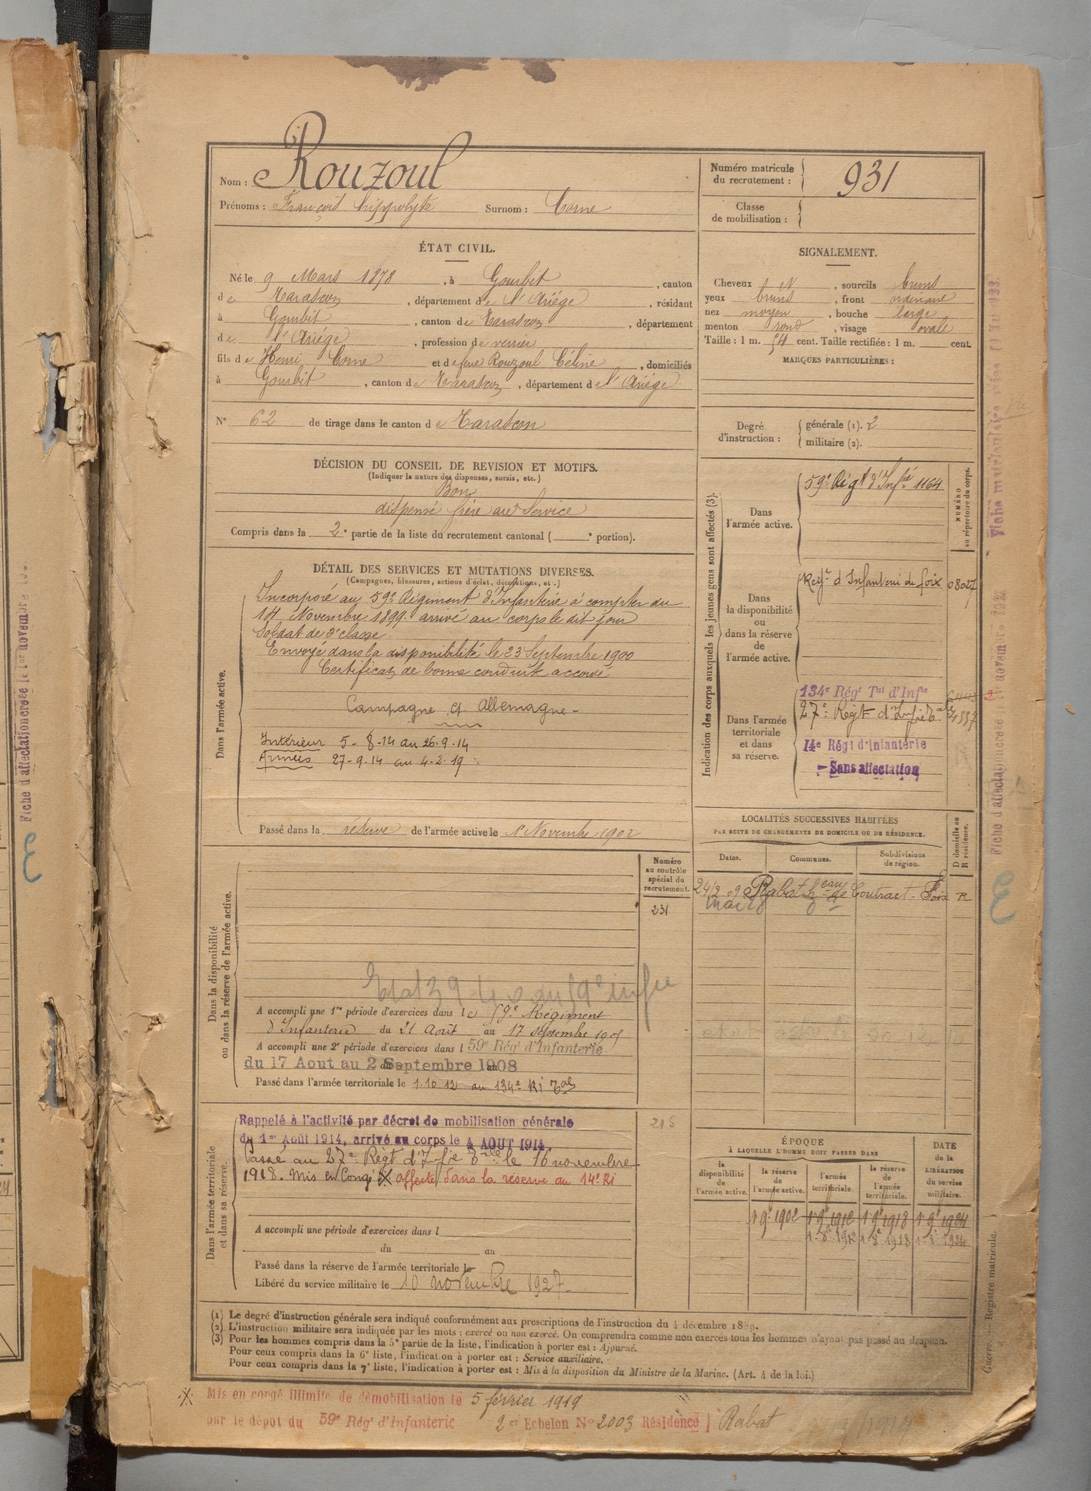 Nom : Rouzoul
Prénoms : François hippolyte Surnom : Corne
Numéro matricule du recrutement : 931
Classe de mobilisation :
ÉTAT CIVIL.
Né le 9 Mars 1878, à Gourbit, canton
de Tarascon, département de l'Ariège, résidant
à Gourbit, canton de Tarascon, département
de l'Ariège, profession de
fils de Henri Corne et de feue Rouzoul Céline, domiciliés
à Gourbit, canton de Tarascon, département de l'Ariége
N° 62 de tirage dans le canton de Tarascon
SIGNALEMENT.
Cheveux N, sourcils bruns
yeux bruns, front ordinaire
nez moyen, bouche large
menton rond, visage ovale
Taille : 1 m. 54 cent. Taille rectifiée : 1 m. cent.
MARQUES PARTICULIÈRES :
Degré d'instruction : générale (1). 2
militaire (2).
DÉCISION DU CONSEIL DE REVISION ET MOTIFS.
(Indiquer la nature des dispenses, sursis, etc.)
Bon
dispensé frère au Service
Compris dans la 2e partie de la liste du recrutement cantonal ( e portion).
DÉTAIL DES SERVICES ET MUTATIONS DIVERSES.
(Campagnes, blessures, actions d'éclat, décorations, etc.)
Dans l'armée active.
Incorporé au 59e Régiment d'Infanterie à compter du
14 Novembre 1899 arrivé au corps le dit jour
Soldat de 2e classe
Envoyé dans la disponibilité le 23 Septembre 1900
Certificat de bonne conduite accordé
Campagne Ct Allemagne -
Intérieur 5-8-14 au 26.9.14
Armées 27-9.14 au 4-2-19
Passé dans la réserve de l'armée active le 1 Novembre 1902
Indication des corps auxquels les jeunes gens sont affectés (3).
NUMÉRO au répertoire du corps.
Dans l'armée active.
59e Régt d'Infie 1164
Dans la disponibilité ou dans la réserve de l'armée active.
Régt d'Infanterie de foix 08027
Dans l'armée territoriale et dans sa réserve.
134e Rég Tal d'Infie
27e Régt d'Infie Tale
14e Régt d'Infanterie
- Sans affectation
LOCALITÉS SUCCESSIVES HABITÉES
PAR SUITE DE CHANGEMENTS DE DOMICILE OU DE RÉSIDENCE.
Dates. Communes. Subdivisions de région. D domicile ou R résidence.
24/2 09 Rabat Foix R
Dans la disponibilité ou dans la réserve de l'armée active.
Numéro au contrôle spécial du recrutement.
231
A accompli une 1re période d'exercices dans le 59e Régiment
d'Infanterie du 21 Août au 17 septembre 1905
A accompli une 2e période d'exercices dans l 59e Rég' d'Infanterie
du 17 Aout au Septembre 1908
Passé dans l'armée territoriale le 1.10 12 au 134e Ri Tal
Dans l'armée territoriale et dans sa réserve.
Rappelé à l'activité par décret de mobilisation générale
du 1er Août 1914, arrivé au corps le 4 AOUT 1914.
Passé au 27e Régt d'Infie Tale le 16 novembre
1918. Mis en Congé X affecté dans la reserve au 14e Ri
A accompli une période d'exercices dans l
du au
Passé dans la réserve de l'armée territoriale le
Libéré du service militaire le 10 novembre 1927.
ÉPOQUE
À LAQUELLE L'HOMME DOIT PASSER DANS
la disponibilité de l'armée active.
la réserve de l'armée active.
l'armée territoriale.
la réserve de l'armée territoriale.
DATE DE LA LIBÉRATION du service militaire.
1 9e 1902 1 9e 1912 1 9e 1918 1 9e 1924
(1) Le degré d'instruction générale sera indiqué conformément aux prescriptions de l'instruction du 4 décembre 1889.
(2) L'instruction militaire sera indiquée par les mots : exercé ou non exercé. On comprendra comme non exercés tous les hommes n'ayant pas passé au drapeau.
(3) Pour les hommes compris dans la 5e partie de la liste, l'indication à porter est : Ajourné.
Pour ceux compris dans la 6e liste, l'indication à porter est : Service auxiliaire.
Pour ceux compris dans la 7e liste, l'indication à porter est : Mis à la disposition du Ministre de la Marine. (Art. 4 de la loi.)
Registre matricule.
X Mis en congé illimité de démobilisation le 5 février 1919
par le dépôt du 59e Rég' d'Infanterie 2e Echelon N° 2003 Résidence Rabat